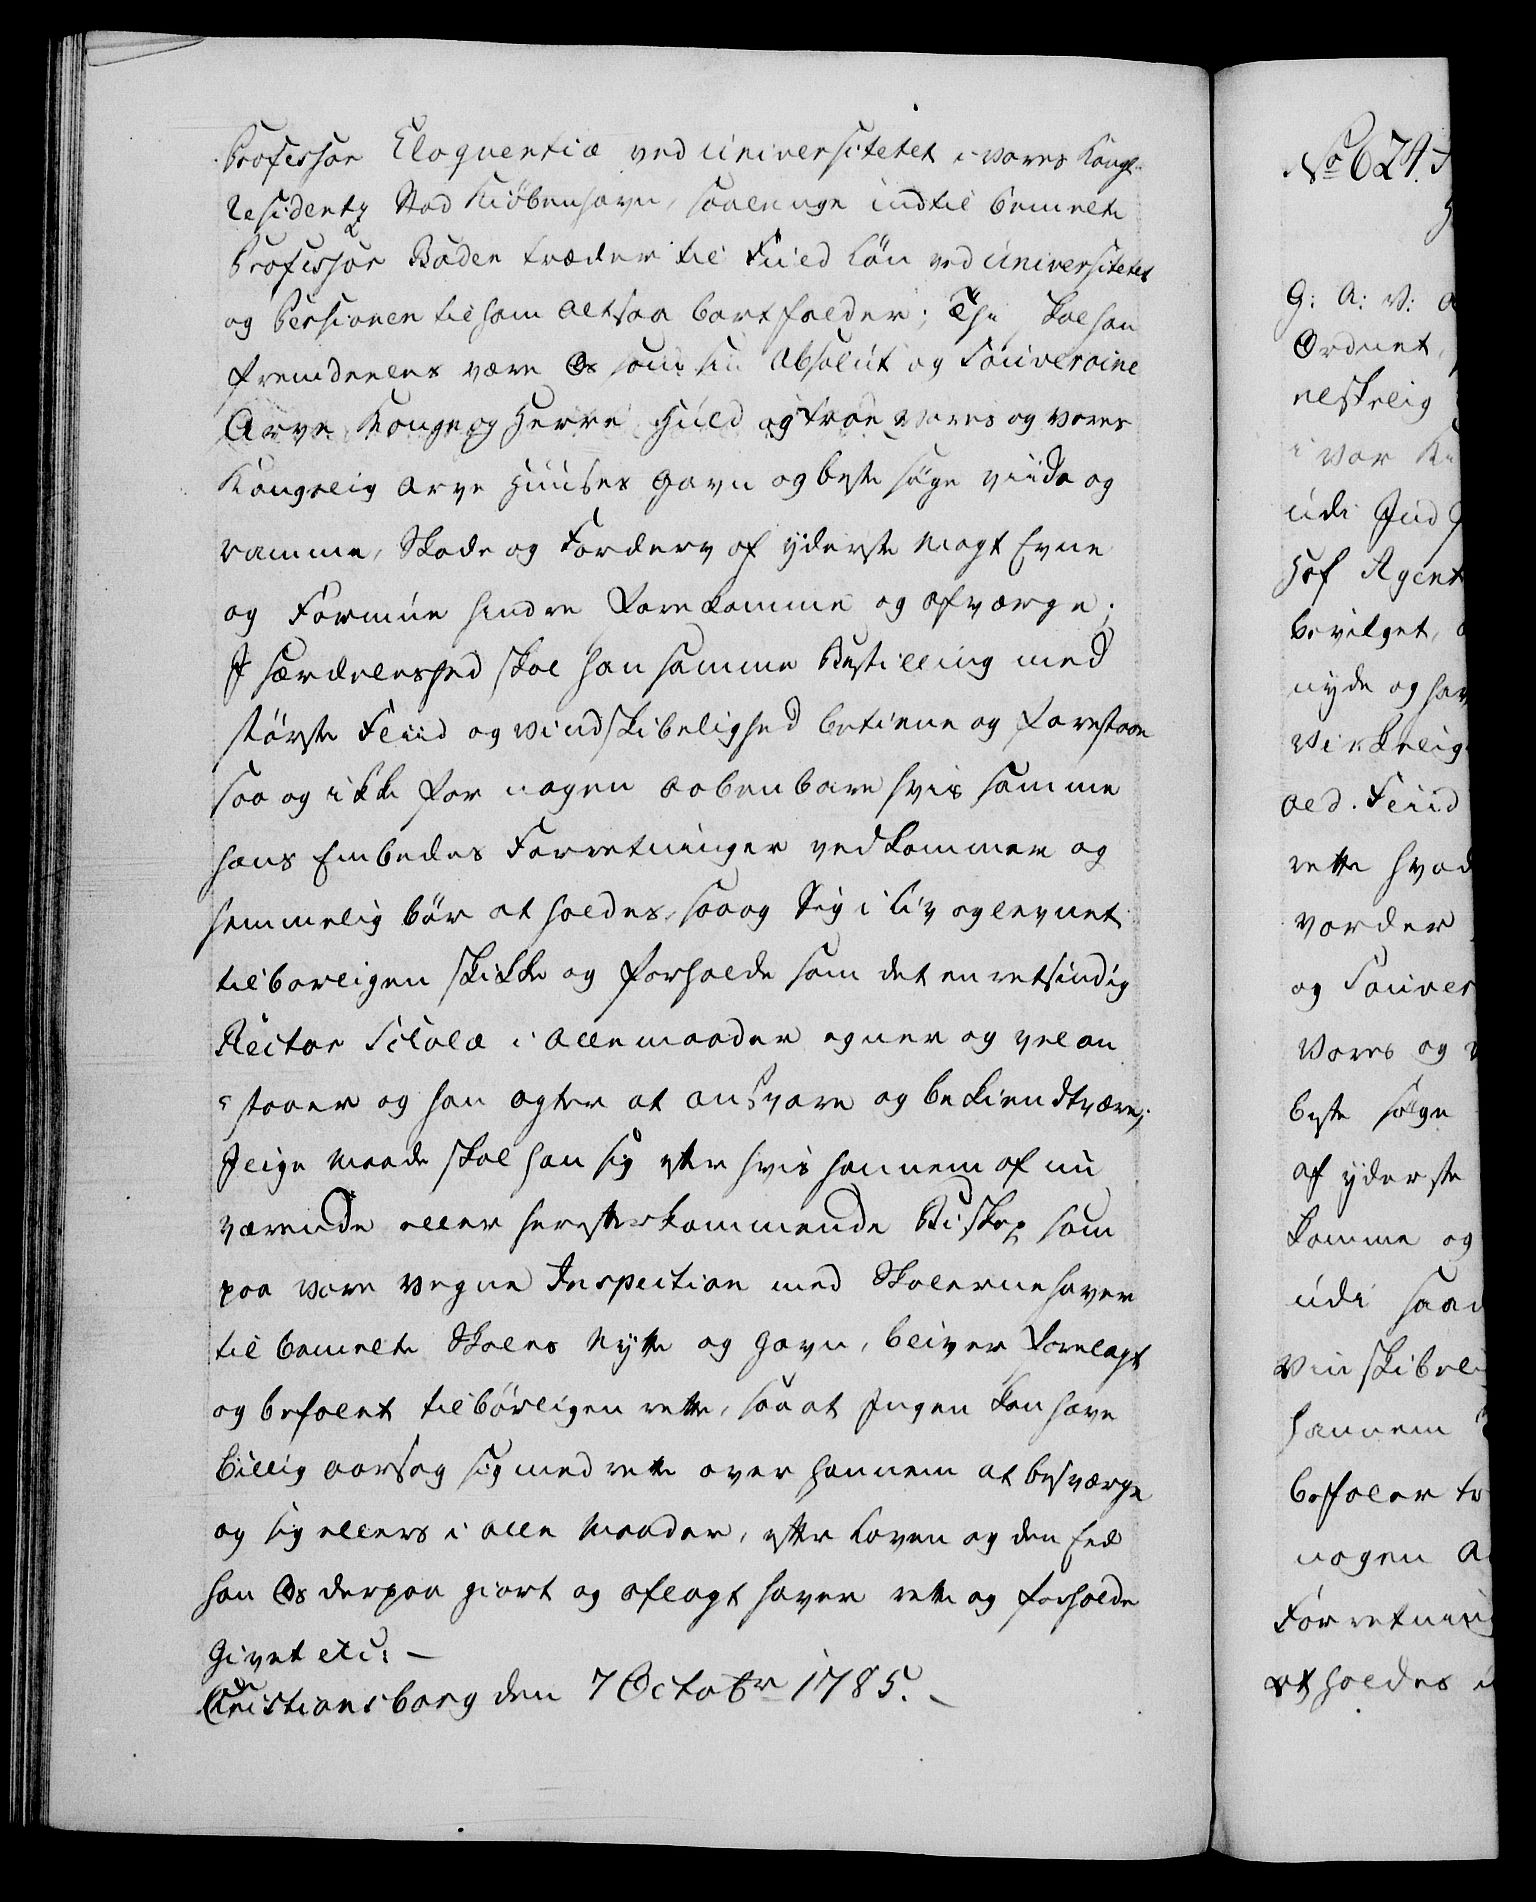 Professor Eloquentiæ ved Universitetet i Vores Kongl.
Residentz Stad Kiöbenhavn, saalenge indtil bemelte
Professor Baden træder til Fuld Lön ved Universitetet
og Pensionen til ham altsaa bortfalder; Thi skal han
fremdeeles være Os som sin Absolut og Souveraine
Arve Konge og Herre, huld og troe Vores og Vores
Kongelig Arve Huuses Gavn og beste söge viide og
ramme, Skade og Forderv af yderste Magt Evne
og Formue hindre Forekomme og afværge;
I særdeleshed skal han samme Bestilling med
störste Fliid og Vindskibelighed betiene og forestaae
saa og ikke for nogen aabenbare hvis samme
hans Embedes Forretninger vedkommer og
hemmelig bör at holdes, saa og Sig i Liv og levnet
tilbörligen skikke og forholde som det en retsindig
Rector Scholæ i Alle maader egner og vel an
staaer og han agter at ansvare og bekiendt være;
Jlige Maade skal han sig efter hvis hannem af nu
værende eller herefterkommende Biskop som
paa Vore Vegne Inspection med Skolerne haver
til bemelte Skoles Nytte og Gavn, bliver Forelagt
og befalet tilbörligen rette, saa at Ingen kan have
billig aarsag sig med rette over hannem at besværge
og sig ellers i Alle Maader, efter Loven og den Eed
han Os derpaa giort og aflagt haver rette og forholde
Givet etc: —
Christiansborg den 7 Octobr 1785. —
No 624.
G: A: V:
Ordnet,
elskelig
i Vor
udi Ind
Hof Agent
bevilget,
nyde og hav
Virkelig
Al Fliid
rette hvad
vorder
og Souver
Vores og
beste söge
af yderste
komme og
udi saa
Vinskibel
hannem
befaler
nogen
Forretning
at holdes